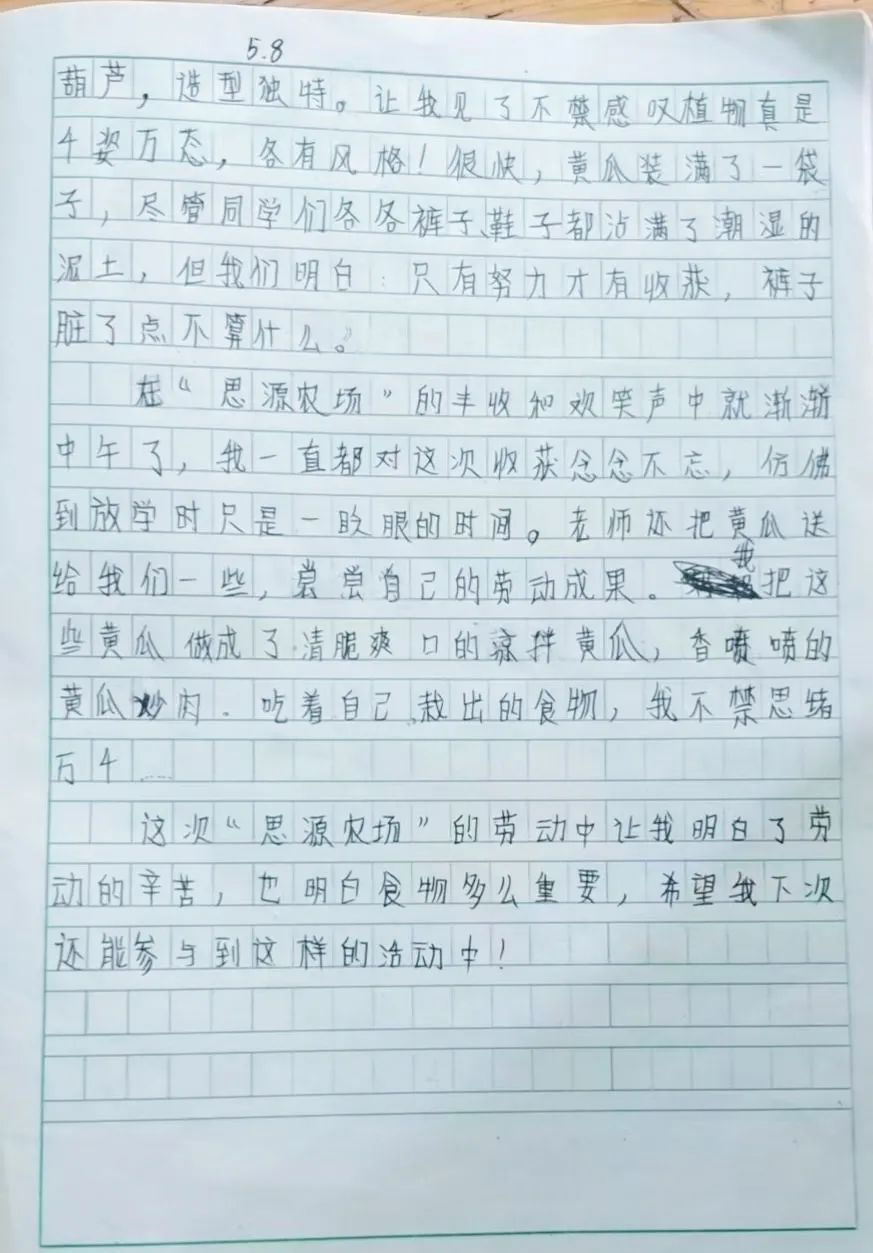 5.8
葫芦，造型独特。让我见了不禁感叹植物真是
千姿万态，各有风格！很快，黄瓜装满了一袋
子，尽管同学们各各裤子、鞋子都沾满了潮湿的
泥土，但我们明白：只有努力才有收获，裤子
脏了点不算什么。
在“思源农场”的丰收和欢笑声中就渐渐
中午了，我一直都对这次收获念念不忘，仿佛
到放学时只是一眨眼的时间。老师还把黄瓜送
给我们一些，尝尝自己的劳动成果。我把这
些黄瓜做成了清脆爽口的凉拌黄瓜，香喷喷的
黄瓜炒肉．吃着自己栽出的食物，我不禁思绪
万千……
这次“思源农场”的劳动中让我明白了劳
动的辛苦，也明白食物多么重要，希望我下次
还能参与到这样的活动中！